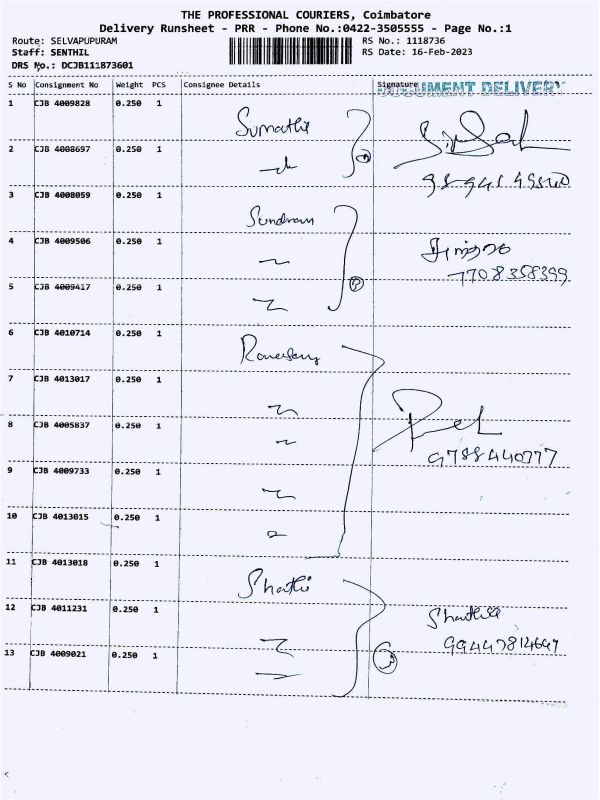 THE PROFESSIONAL COURIERS, Coimbatore
Delivery Runsheet - PRR - Phone No.:0422-3505555 - Page No.:1
Route: SELVAPUPURAM RS No.: 1118736
Staff: SENTHIL RS Date: 16-Feb-2023
DRS No.: DCJB111873601
S No Consignment No Weight PCS Consignee Details Signature DOCUMENT DELIVERY
1 CJB 4009828 0.250 1
Sumathi
2 CJB 4008697 0.250 1
3 CJB 4008059 0.250 1
Sundram
4 CJB 4009506 0.250 1
7708358399
5 CJB 4009417 0.250 1
6 CJB 4010714 0.250 1
7 CJB 4013017 0.250 1
8 CJB 4005837 0.250 1
9788440777
9 CJB 4009733 0.250 1
10 CJB 4013015 0.250 1
11 CJB 4013018 0.250 1
Shathi
12 CJB 4011231 0.250 1
13 CJB 4009021 0.250 1